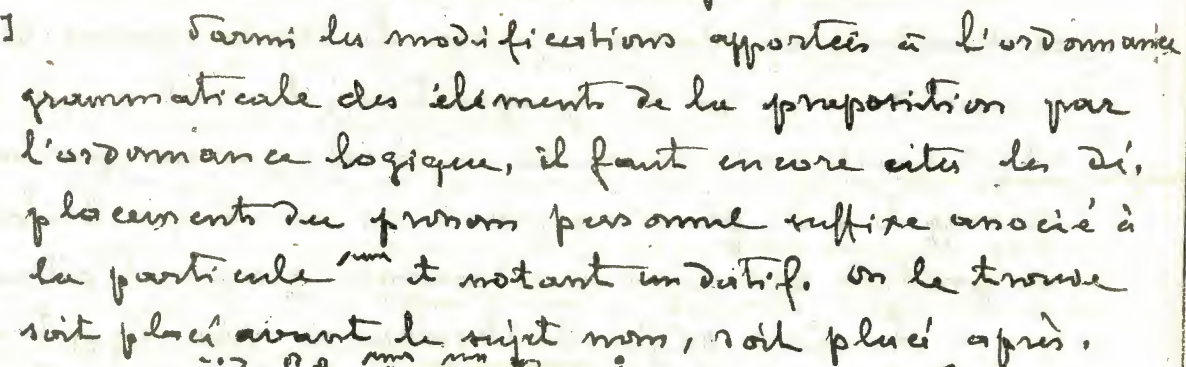 Parmi les modifications apportées à l'ordonnance
grammaticale des éléments de la proposition par
l'ordonnance logique, il faut encore citer les dé-
placements du pronom personnel suffixe associé à
la particule et notant un datif. on le trouve
soit placé avant le sujet nom, soit placé après.